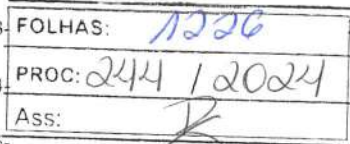 FOLHAS: 1226
PROC: 244 / 2024
Ass: